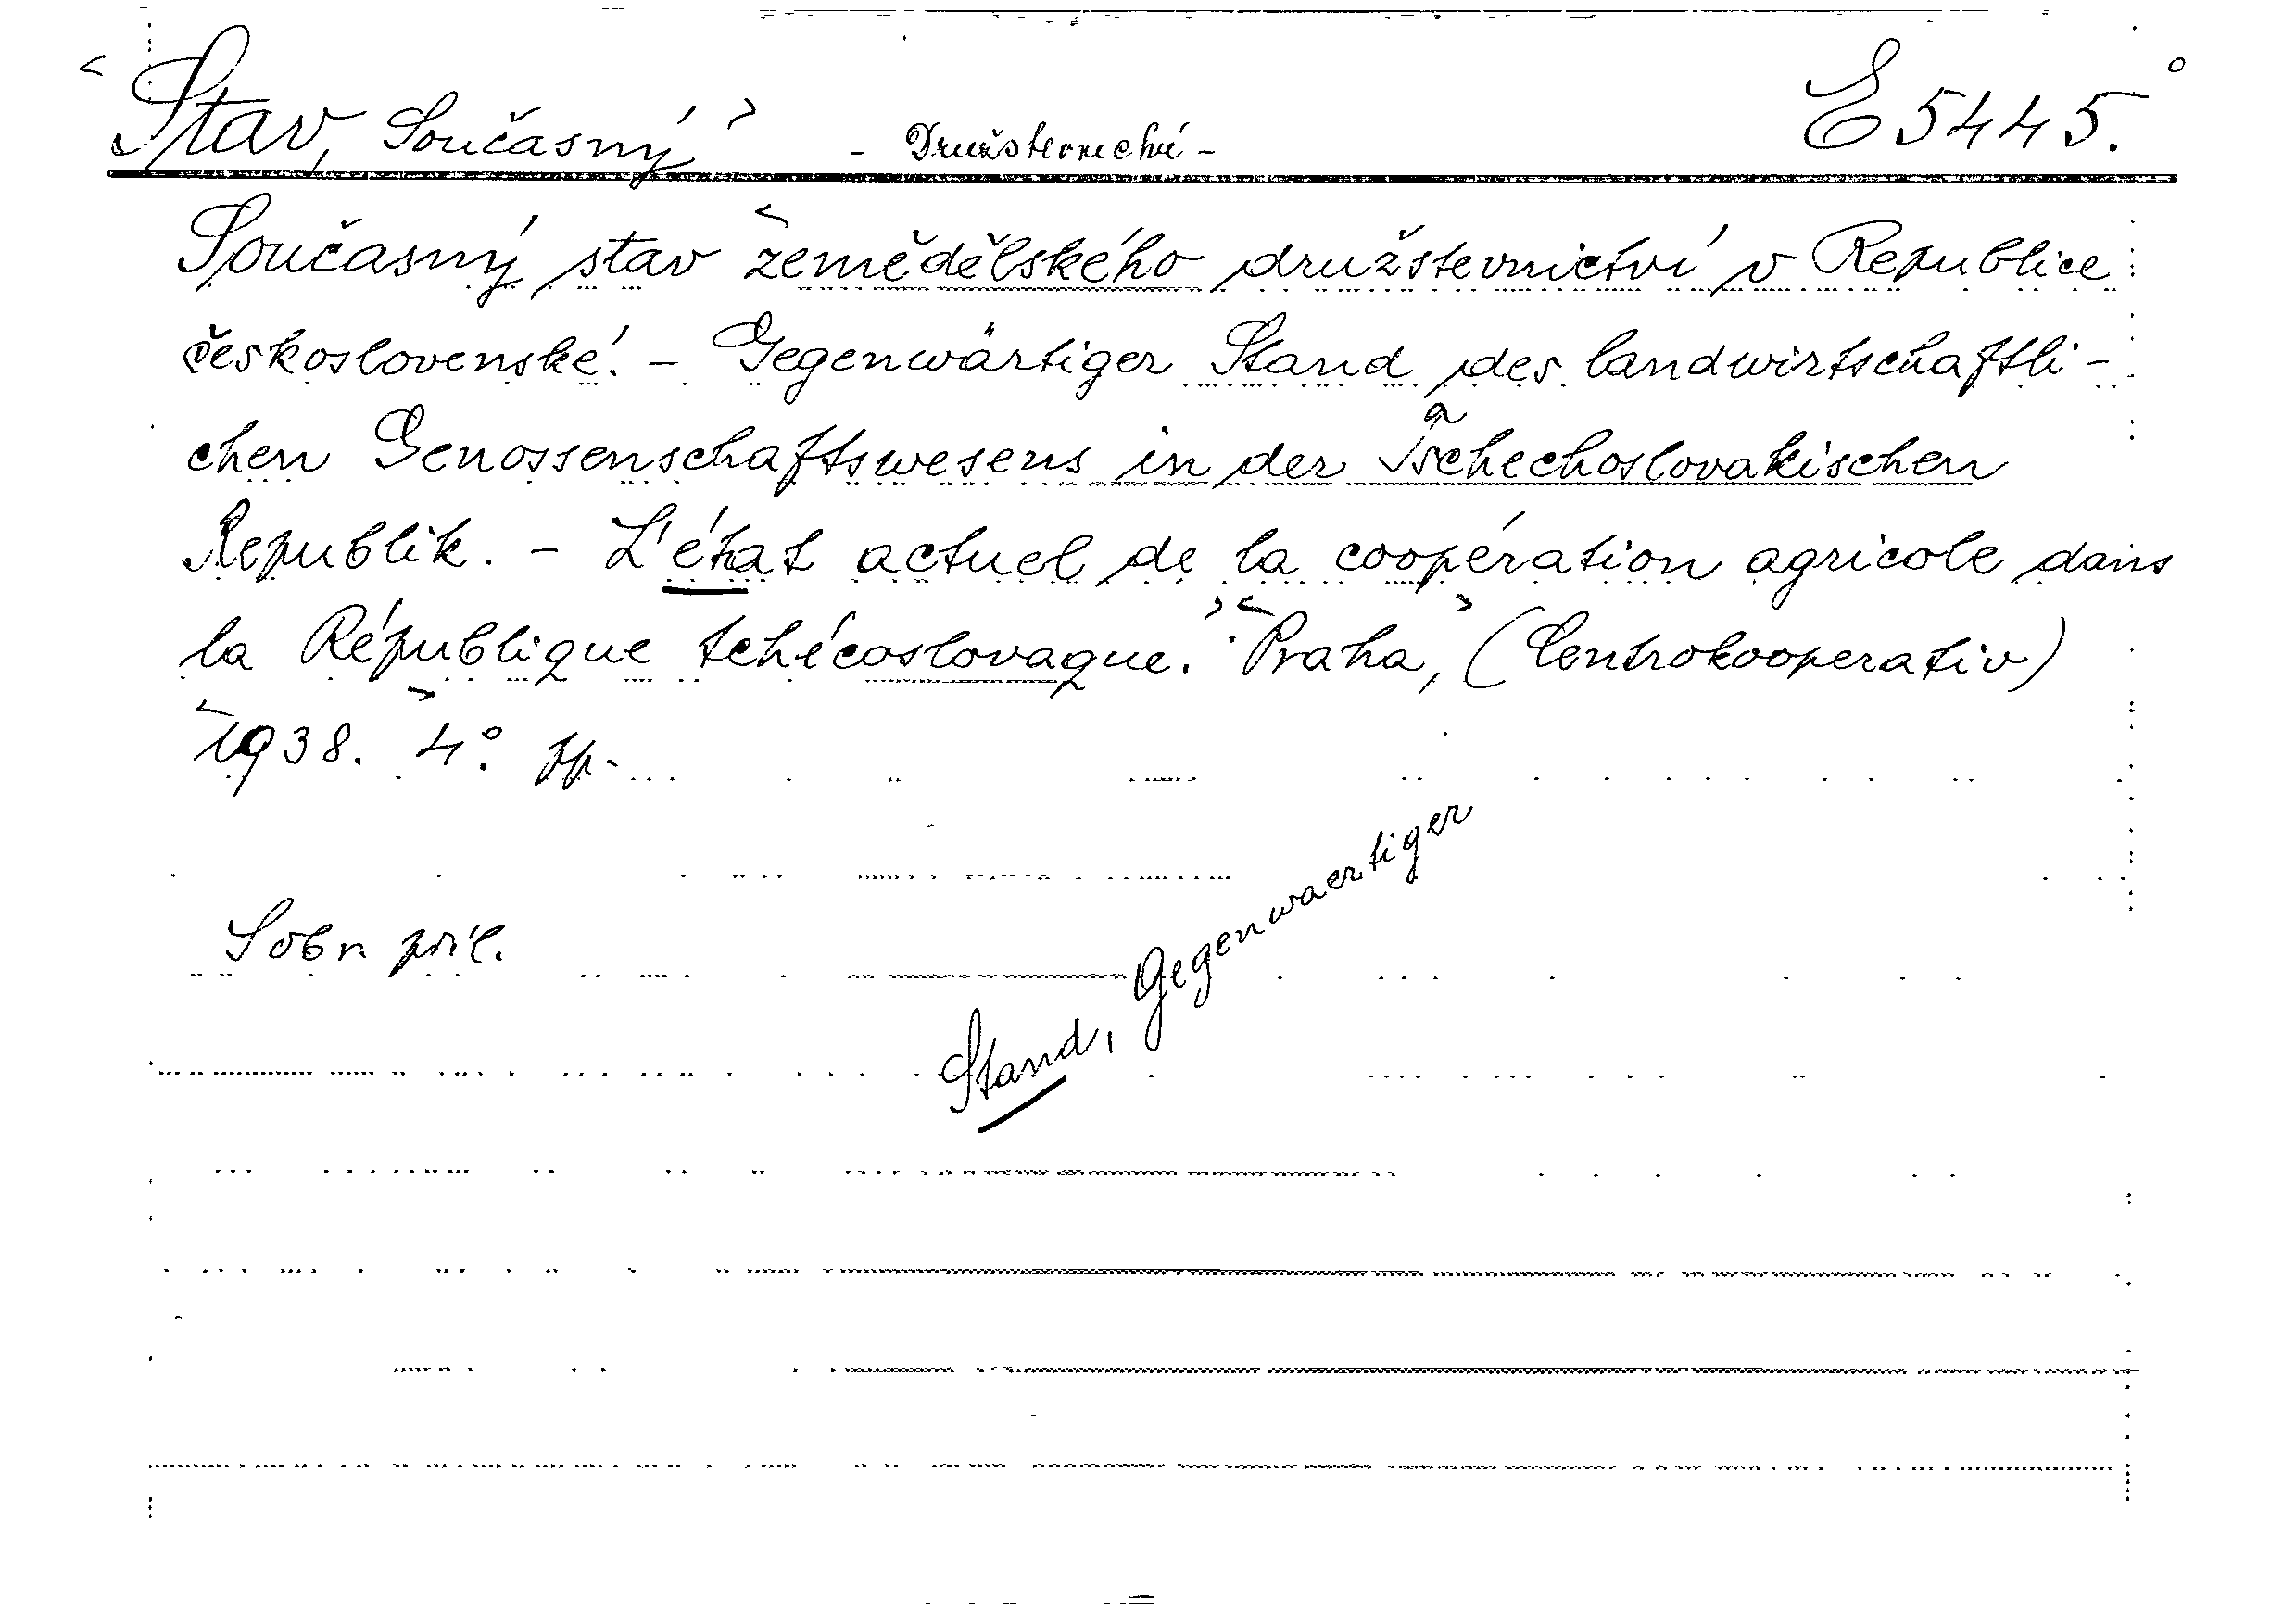 Stav, Současný - Družstevnictví - E 5445.
Současný stav zemědělského družstevnictví v Republice
československé. - Gegenwärtiger Stand des landwirtschaftli-
chen Genossenschaftswesens in der Tschechoslovakischen
Republik. - L'état actuel de la coopération agricole dans
la République tchécoslovaque. Praha, (Centrokooperativ)
1938. 4°.
Sobr. příl.
Stand, Gegenwaertiger